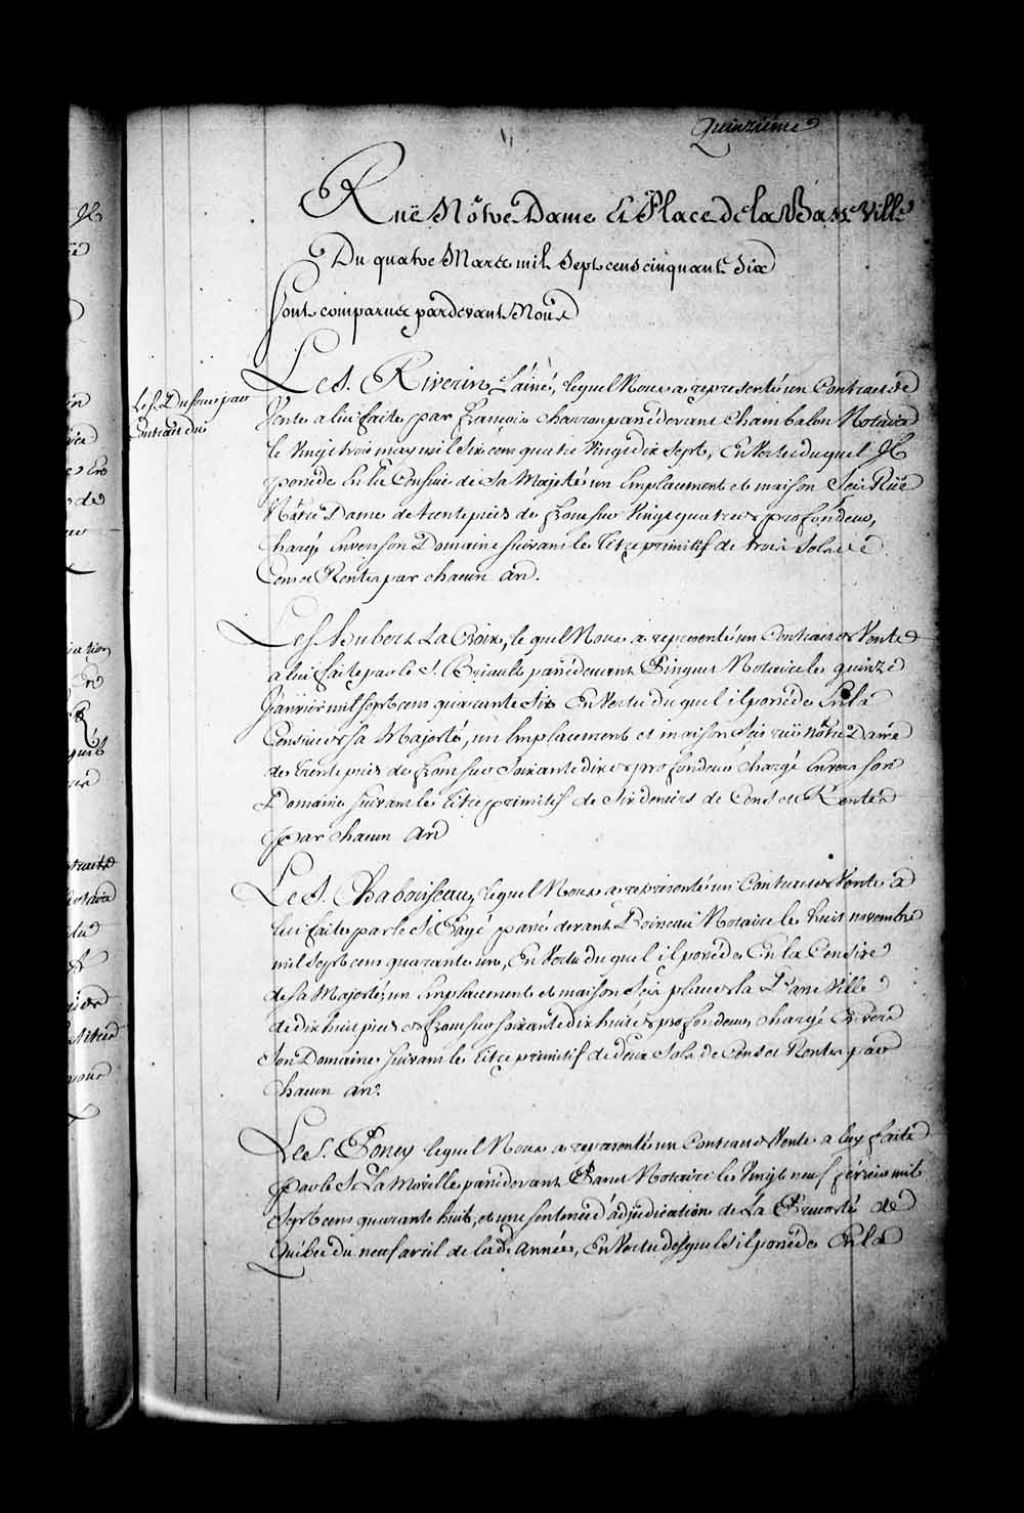 Quinzieme
Ruë Nôtre Dame Et Place de la Basse Ville
Du quatre Mars mil Sept cens cinquante Six
Sont comparus pardevant Nous
Le S. Riverin L'ainé, lequel Nous a representé un Contrat de
Le S. Dufour par
Contrait du
Vente a lui faite par François Charron passé devant Chambalon Notaire
le Vingt trois may mil Six cens quatre Vingt dix Sept, En Vertu duquel Il
possede En la Censive de Sa Majesté un Emplacement et maison Seis Ruë
Nôtre Dame de trente pieds de front sur Vingt quatre de profondeur,
chargé Envers son Domaine suivant le Titre primitif de trois Sols de
Cens et Rentes par chacun an.
Le S. Hubert La Croix, lequel Nous a representé un Contrat de Vente
a lui faite par le S. Briault passé devant Pinguet Notaire le quinze
Janvier mil sept cens quarante Six En Vertu duquel il possede En la
Censive de sa Majesté, un Emplacement et maison Seis ruë nôtre Dame
de trente pieds de front sur Soixante dix de profondeur chargé Envers son
Domaine suivant le Titre primitif de Six deniers de Cens et Rentes
par chacun an
Le S. Chaboisseau, lequel Nous a representé un Contrat de Vente a
lui faite par le S. Payé passé devant Boineau Notaire le huit novembre
mil Sept cens quarante un, En Vertu duquel il possede En la Censive
de sa Majesté, un Emplacement et maison Seis place de la Basse Ville
de dix huit pieds de front sur soixante dix huit de profondeur, chargé Envers
Son Domaine suivant le Titre primitif de deux Sols de Cens et Rentes par
chacun an.
Le S. Poncy lequel Nous a representé un Contrat de Vente a luy faite
par le S. La Morille passé devant Panet Notaire le Vingt neuf fevrier mil
Sept cens quarante huit, et une sentence d'adjudication de La Prevosté de
Québec du neuf avril de lad. année, En Vertu desquels il possede En la